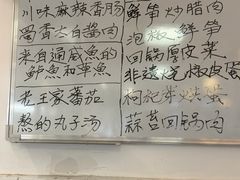 川味麻辣香肠
蜀香大白酱肉
来自通威鱼的
鲈鱼和草鱼
老王家番茄
熬的丸子汤
鲜笋炒腊肉
泡椒鲜笋
回锅厚皮菜
非遗烧椒皮蛋
枸杞芽烘蛋
蒜苔回锅肉